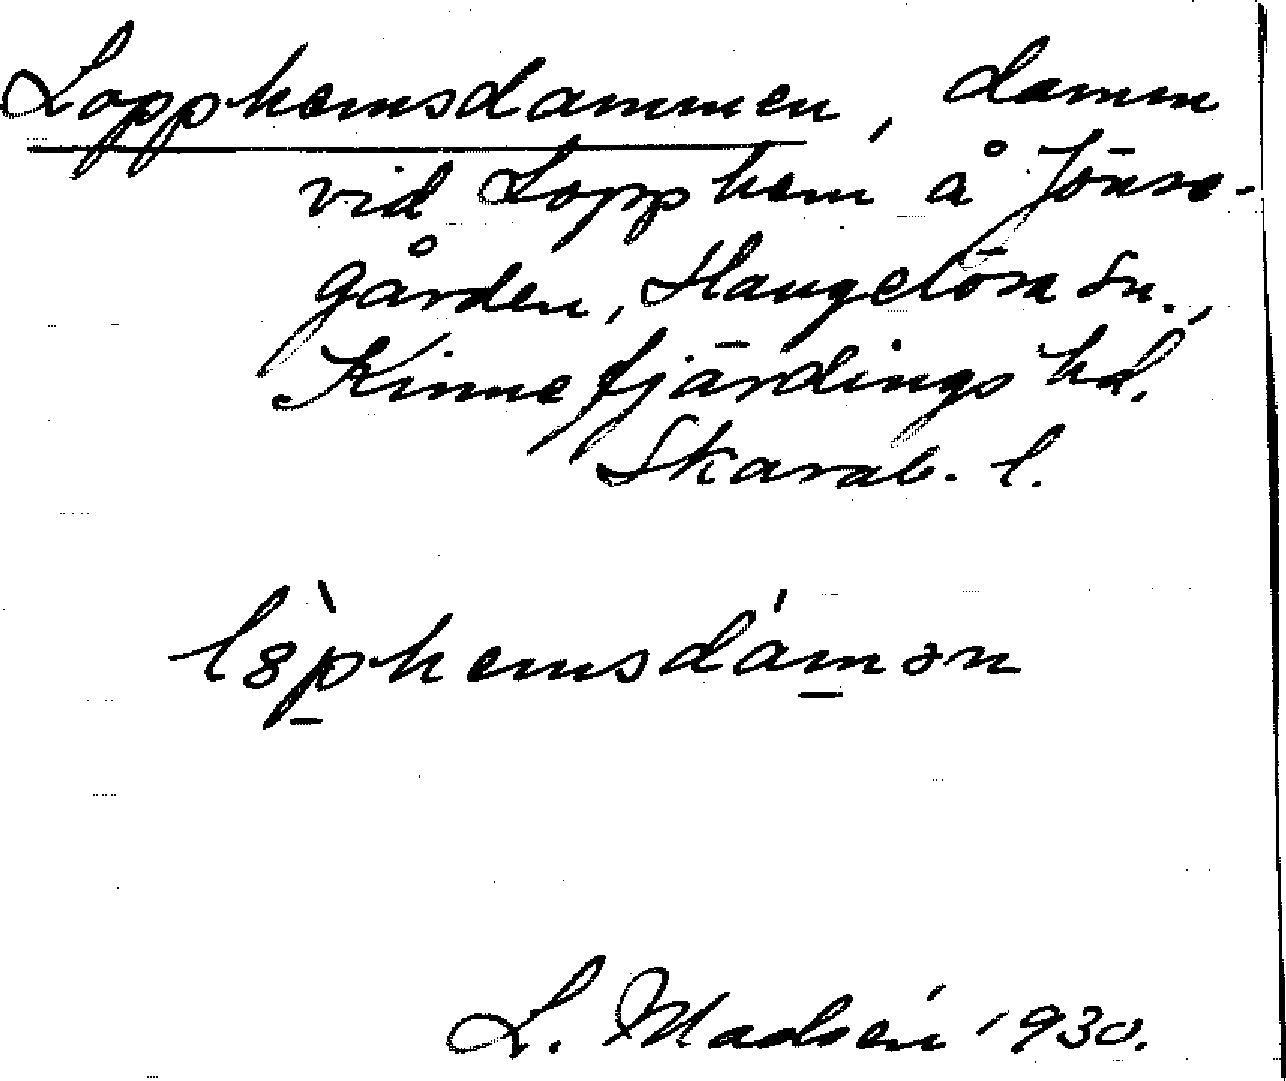 Lopphemsdammen, damm
vid Lopphem å Jönsa-
gården, Haugelösa sn.,
Kinnefjärdings hd.
Skarab. l.
l8̀p̱hemsdám̱ən
L. Madsén 1930.